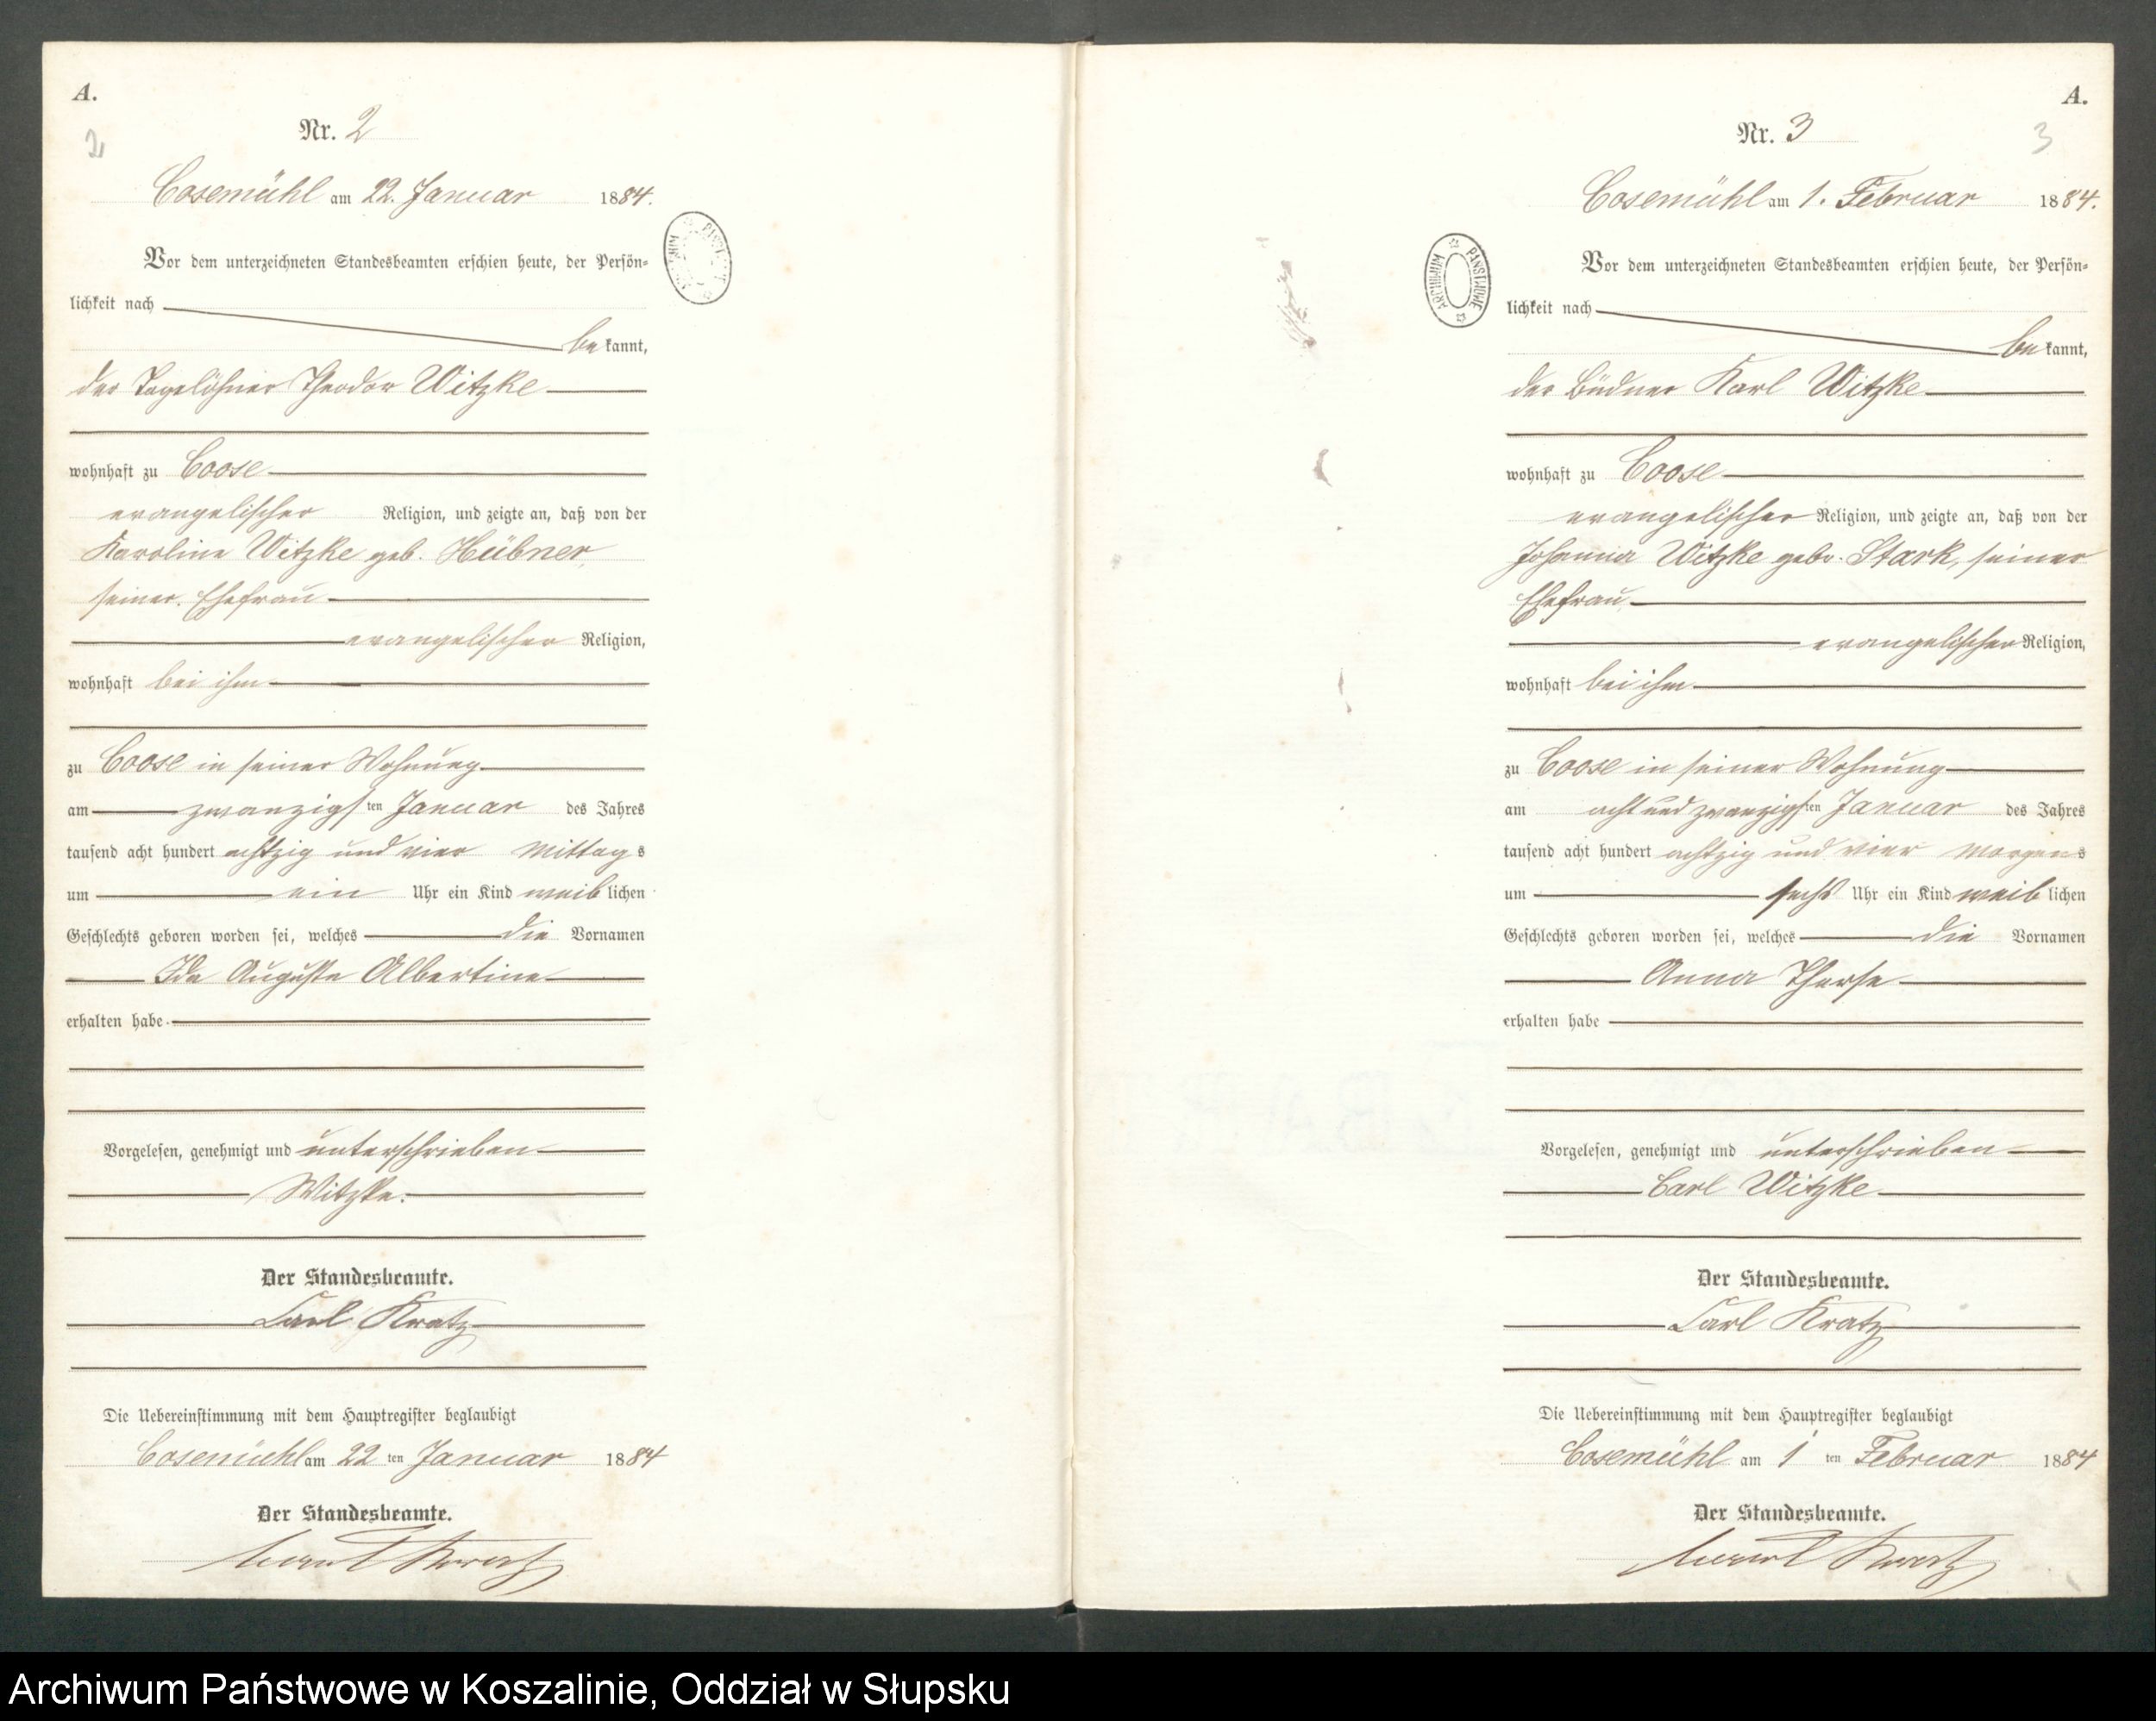 A.
2
Nr. 2
Cosemühl am 22. Januar 1884.
Vor dem unterzeichneten Standesbeamten erschien heute, der Persön-
lichkeit nach
bekannt,
der Tagelöhner Theodor Witzke
wohnhaft zu Coose
evangelischer Religion, und zeigte an, daß von der
Karoline Witzke geb. Hübner,
seiner Ehefrau
evangelischer Religion,
wohnhaft bei ihm
zu Coose in seiner Wohnung
am zwanzigsten Januar des Jahres
tausend acht hundert achtzig und vier Mittags
um ein Uhr ein Kind weiblichen
Geschlechts geboren worden sei, welches die Vornamen
Ida Auguste Albertine
erhalten habe.
Vorgelesen, genehmigt und unterschrieben
Witzke.
Der Standesbeamte.
Carl Kratz
Die Uebereinstimmung mit dem Hauptregister beglaubigt
Cosemühl am 22 ten Januar 1884
Der Standesbeamte.
Carl Kratz
A.
3
Nr. 3
Cosemühl am 1. Februar 1884.
ARCHIWUM PAŃSTWOWE
Vor dem unterzeichneten Standesbeamten erschien heute, der Persön-
lichkeit nach
bekannt,
der Büdner Karl Witzke
wohnhaft zu Coose
evangelischer Religion, und zeigte an, daß von der
Johanna Witzke gebr. Stark, seiner
Ehefrau
evangelischer Religion,
wohnhaft bei ihm
zu Coose in seiner Wohnung
am acht und zwanzigsten Januar des Jahres
tausend acht hundert achtzig und vier Morgens
um sechs Uhr ein Kind weiblichen
Geschlechts geboren worden sei, welches die Vornamen
Anna Therse
erhalten habe
Vorgelesen, genehmigt und unterschrieben
Carl Witzke
Der Standesbeamte.
Carl Kratz
Die Uebereinstimmung mit dem Hauptregister beglaubigt
Cosemühl am 1 ten Februar 1884
Der Standesbeamte.
Carl Kratz
Archiwum Państwowe w Koszalinie, Oddział w Słupsku